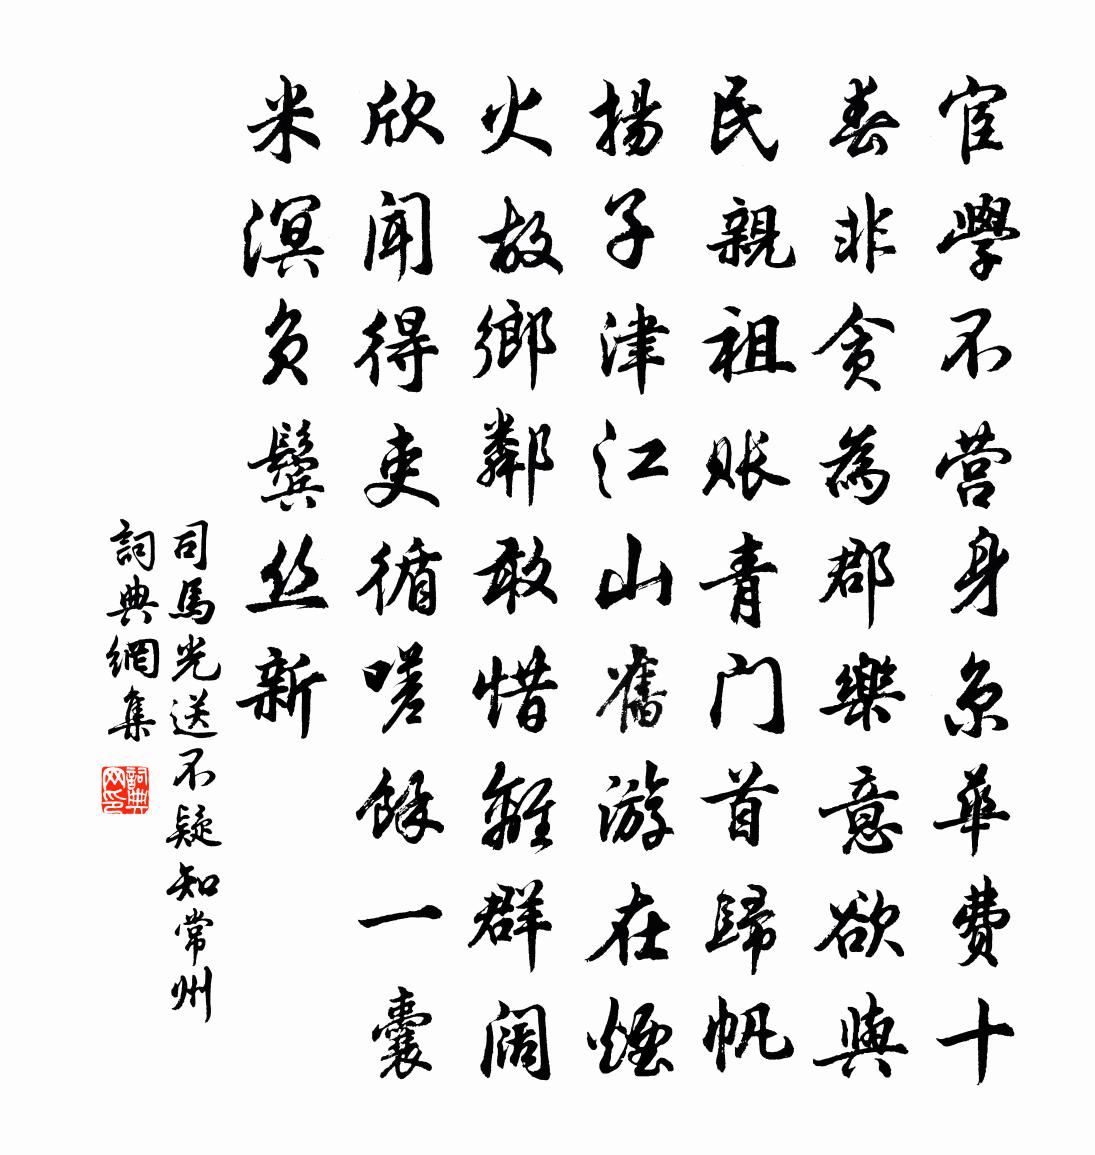 宦學不营身京華費十
春非貪為郡樂意欲與
民親祖账青门首歸帆
揚子津江山舊游在煙
火故鄉鄰敢惜離群阔
欣聞得吏循嗟餘一囊
米溟負鬢丝新
司馬光送不疑知常州
詞典網集
詞典网印